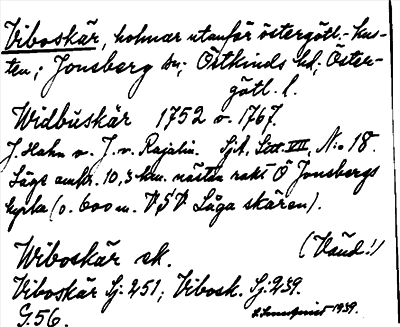 Viboskär, holmar utanför östergötl.-kus-
ten; Jonsberg sn; Östkinds hd; Öster-
götl. l.
Widbuskär 1752 o. 1767.
J. Hahn o. J. v. Rajalin. Sjk, Sect. VII, N:o 18.
Läge omkr. 10,3 km. nästan rakt Ö Jonsbergs
kyrka (o. 600 m. VSV Låga skären).
Wiboskär sk. (Vänd!)
Viboskär Sj: 251; Vibosk. Sj: 239.
G. 56. 1939.